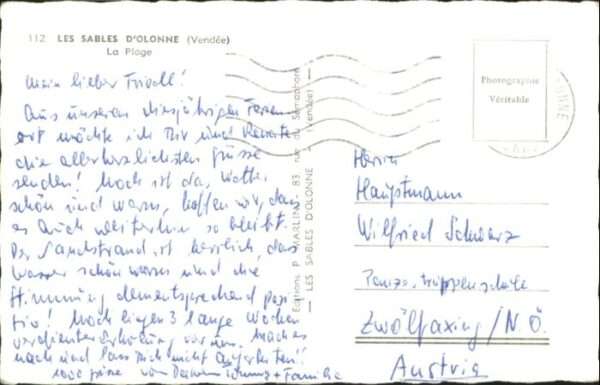 112 LES SABLES D'OLONNE (Vendée)
La Plage
Mein lieber Friedl!
Aus unserem diesjährigen Ferien-
ort möchte ich Dir und Renate
die allerherzlichsten Grüsse
senden! Noch ist das Wetter
schön und warm, hoffen wir, dass
es auch weiterhin so bleibt.
Der Sandstrand ist herrlich, das
Wasser schön warm und die
Stimmung dementsprechend posi-
tiv! Noch liegen 3 lange Wochen
verdienter Erholung vor uns. Mach es
nach und lass Dich nicht
1000 von Deinem + Familie
Editions P. MARLIN, 83, rue du Sémaphore
— LES SABLES D'OLONNE — (Vendée) —
Photographie
Véritable
Herrn
Hauptmann
Wilfried Schwarz
Panzertruppenschule
Zwölfaxing / N.Ö.
Austria